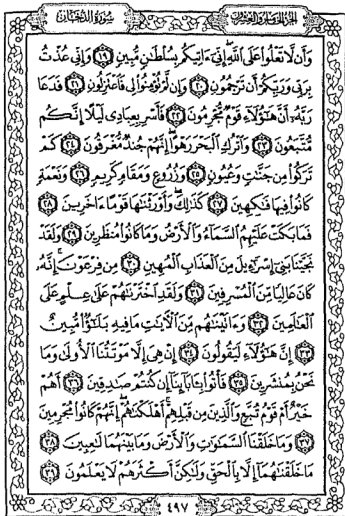 الجزء الخامس والعشرون سورة الدخان
وَأَن لَّا تَعْلُوا۟ عَلَى ٱللَّهِ ۖ إِنِّىٓ ءَاتِيكُم بِسُلْطَـٰنٍ مُّبِينٍ ١٩ وَإِنِّى عُذْتُ
بِرَبِّى وَرَبِّكُمْ أَن تَرْجُمُونِ ٢٠ وَإِن لَّمْ تُؤْمِنُوا۟ لِى فَٱعْتَزِلُونِ ٢١ فَدَعَا
رَبَّهُۥٓ أَنَّ هَـٰٓؤُلَآءِ قَوْمٌ مُّجْرِمُونَ ٢٢ فَأَسْرِ بِعِبَادِى لَيْلًا إِنَّكُم
مُّتَّبَعُونَ ٢٣ وَٱتْرُكِ ٱلْبَحْرَ رَهْوًا ۖ إِنَّهُمْ جُندٌ مُّغْرَقُونَ ٢٤ كَمْ
تَرَكُوا۟ مِن جَنَّـٰتٍ وَعُيُونٍ ٢٥ وَزُرُوعٍ وَمَقَامٍ كَرِيمٍ ٢٦ وَنَعْمَةٍ
كَانُوا۟ فِيهَا فَـٰكِهِينَ ٢٧ كَذَٰلِكَ ۖ وَأَوْرَثْنَـٰهَا قَوْمًا ءَاخَرِينَ ٢٨
فَمَا بَكَتْ عَلَيْهِمُ ٱلسَّمَآءُ وَٱلْأَرْضُ وَمَا كَانُوا۟ مُنظَرِينَ ٢٩ وَلَقَدْ
نَجَّيْنَا بَنِىٓ إِسْرَٰٓءِيلَ مِنَ ٱلْعَذَابِ ٱلْمُهِينِ ٣٠ مِن فِرْعَوْنَ ۚ إِنَّهُۥ
كَانَ عَالِيًا مِّنَ ٱلْمُسْرِفِينَ ٣١ وَلَقَدِ ٱخْتَرْنَـٰهُمْ عَلَىٰ عِلْمٍ عَلَى
ٱلْعَـٰلَمِينَ ٣٢ وَءَاتَيْنَـٰهُم مِّنَ ٱلْـَٔايَـٰتِ مَا فِيهِ بَلَـٰٓؤٌا۟ مُّبِينٌ
٣٣ إِنَّ هَـٰٓؤُلَآءِ لَيَقُولُونَ ٣٤ إِنْ هِىَ إِلَّا مَوْتَتُنَا ٱلْأُولَىٰ وَمَا
نَحْنُ بِمُنشَرِينَ ٣٥ فَأْتُوا۟ بِـَٔابَآئِنَآ إِن كُنتُمْ صَـٰدِقِينَ ٣٦ أَهُمْ
خَيْرٌ أَمْ قَوْمُ تُبَّعٍ وَٱلَّذِينَ مِن قَبْلِهِمْ ۚ أَهْلَكْنَـٰهُمْ ۖ إِنَّهُمْ كَانُوا۟ مُجْرِمِينَ
٣٧ وَمَا خَلَقْنَا ٱلسَّمَـٰوَٰتِ وَٱلْأَرْضَ وَمَا بَيْنَهُمَا لَـٰعِبِينَ ٣٨
مَا خَلَقْنَـٰهُمَآ إِلَّا بِٱلْحَقِّ وَلَـٰكِنَّ أَكْثَرَهُمْ لَا يَعْلَمُونَ ٣٩
٤٩٧